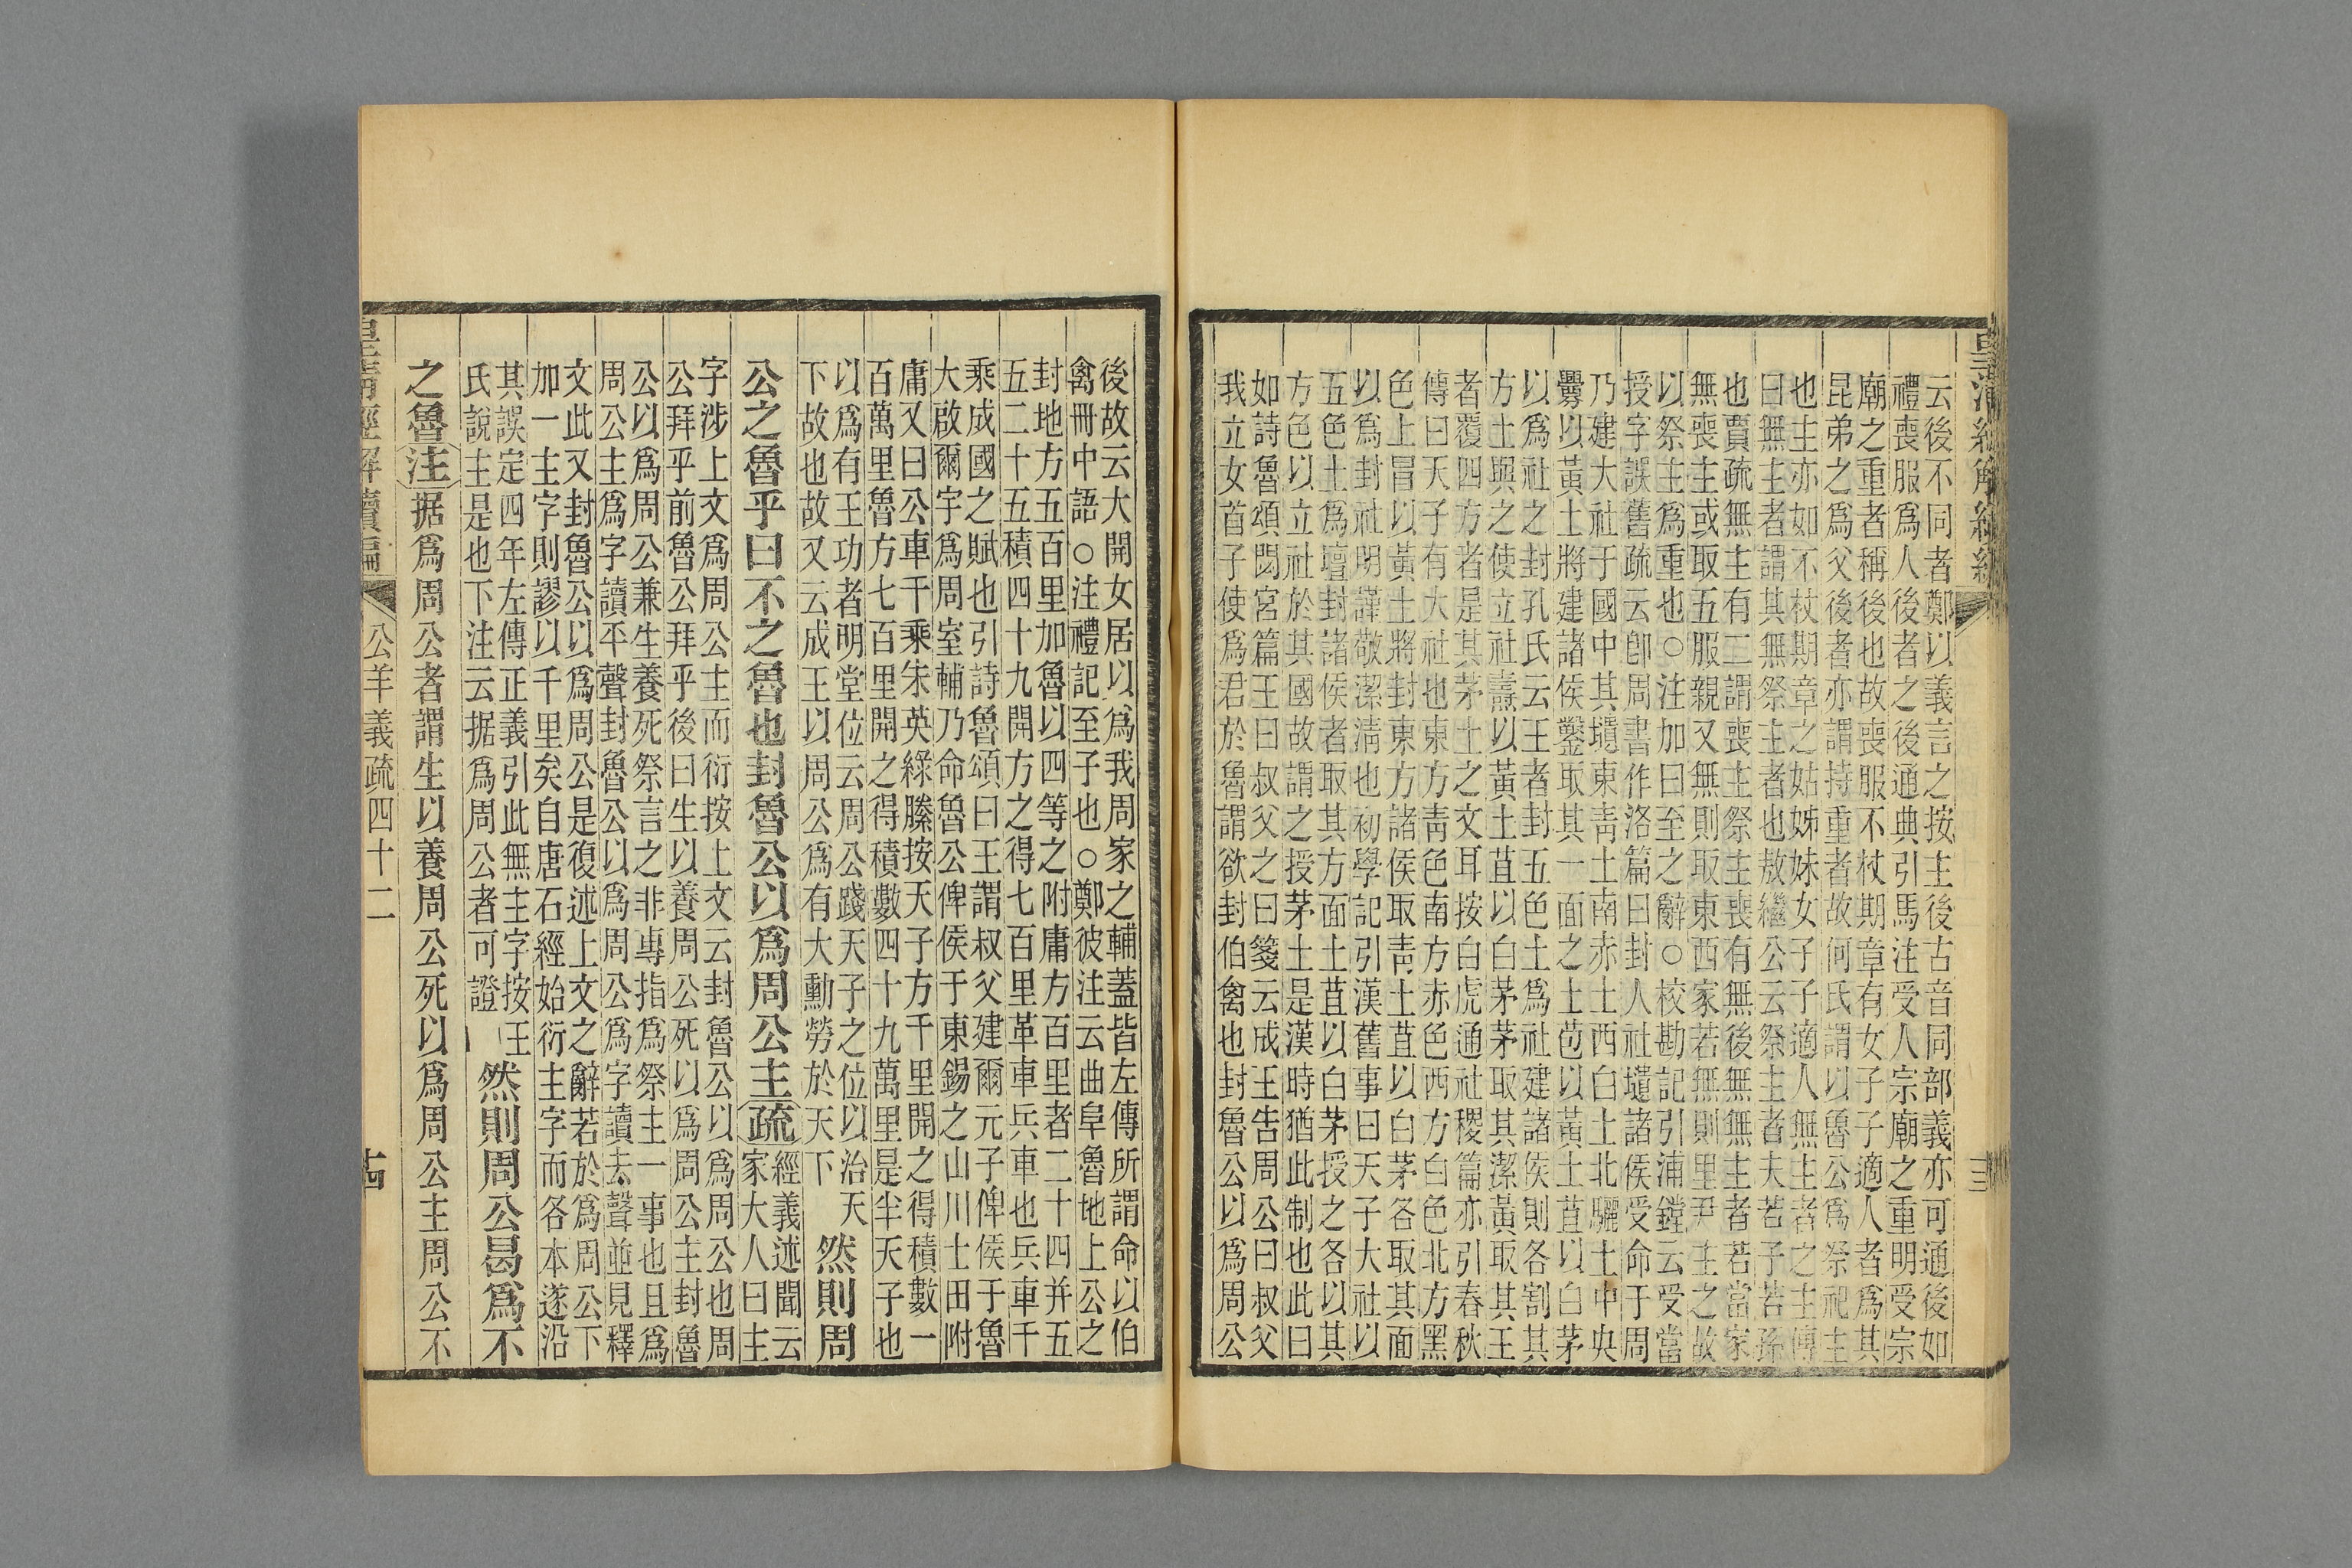 云後不同者鄭以義言之按主後古音同部義亦可通後如
禮喪服爲人後者之後通典引馬注受人宗廟之重明受宗
廟之重者稱後也故喪服不杖期章有女子子適人者爲其
昆弟之爲父後者亦謂持重者故何氏謂以魯公爲祭祀主
也主亦如不杖期章之姑姊妹女子子適人無主者之主傳
曰無主者謂其無祭主者也敖繼公云祭主者夫若子若孫
也賈疏無主有二謂喪主祭主喪有無後無無主者若當家
無喪主或取五服親又無則取東西家若無則里尹主之故
以祭主爲重也○注加曰至之辭○校勘記引浦鏜云受當
授字誤舊疏云卽周書作洛篇曰封人社壝諸侯受命于周
乃建大社于國中其壝東靑土南赤土西白土北驪土中央
釁以黃土將建諸侯鑿取其一面之土苞以黃土苴以白茅
以爲社之封孔氏云王者封五色土爲社建諸侯則各割其
方土與之使立社燾以黃土苴以白茅茅取其潔黃取其王
者覆四方者是其茅土之文耳按白虎通社稷篇亦引春秋
傳曰天子有大社也東方靑色南方赤色西方白色北方黑
色上冒以黃土將封東方諸侯取靑土苴以白茅各取其面
以爲封社明謹敬潔淸也初學記引漢舊事曰天子大社以
五色土爲壇封諸侯者取其方面土苴以白茅授之各以其
方色以立社於其國故謂之授茅土是漢時猶此制也此曰
如詩魯頌閟宮篇王曰叔父之曰箋云成王告周公曰叔父
我立女首子使爲君於魯謂欲封伯禽也封魯公以爲周公
後故云大開女居以爲我周家之輔蓋皆左傳所謂命以伯
禽冊中語○注禮記至子也○鄭彼注云曲阜魯地上公之
封地方五百里加魯以四等之附庸方百里者二十四并五
五二十五積四十九開方之得七百里革車兵車也兵車千
乘成國之賦也引詩魯頌曰王謂叔父建爾元子俾侯于魯
大啟爾宇爲周室輔乃命魯公俾侯于東錫之山川土田附
庸又曰公車千乘朱英綠縢按天子方千里開之得積數一
百萬里魯方七百里開之得積數四十九萬里是半天子也
以爲有王功者明堂位云周公踐天子之位以治天
下故也故又云成王以周公爲有大勳勞於天下
然則周
公之魯乎曰不之魯也封魯公以爲周公主疏
經義述聞云
家大人曰主
字涉上文爲周公主而衍按上文云封魯公以爲周公也周
公拜乎前魯公拜乎後曰生以養周公死以爲周公主封魯
公以爲周公兼生養死祭言之非專指爲祭主一事也且爲
周公主爲字讀平聲封魯公以爲周公爲字讀去聲並見釋
文此又封魯公以爲周公是復述上文之辭若於爲周公下
加一主字則謬以千里矣自唐石經始衍主字而各本遂沿
其誤定四年左傳正義引此無主字按王
氏說主是也下注云据爲周公者可證
然則周公曷爲不
之魯注据爲周公者謂生以養周公死以爲周公主周公不
公羊義疏四十二
十四